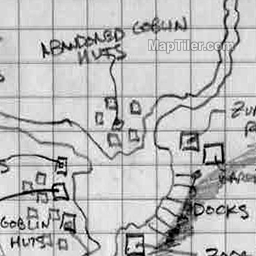 ABANDONED GOBLIN
HUTS
MapTiler.com
ZU
DOCKS
GOBLIN
HUTS